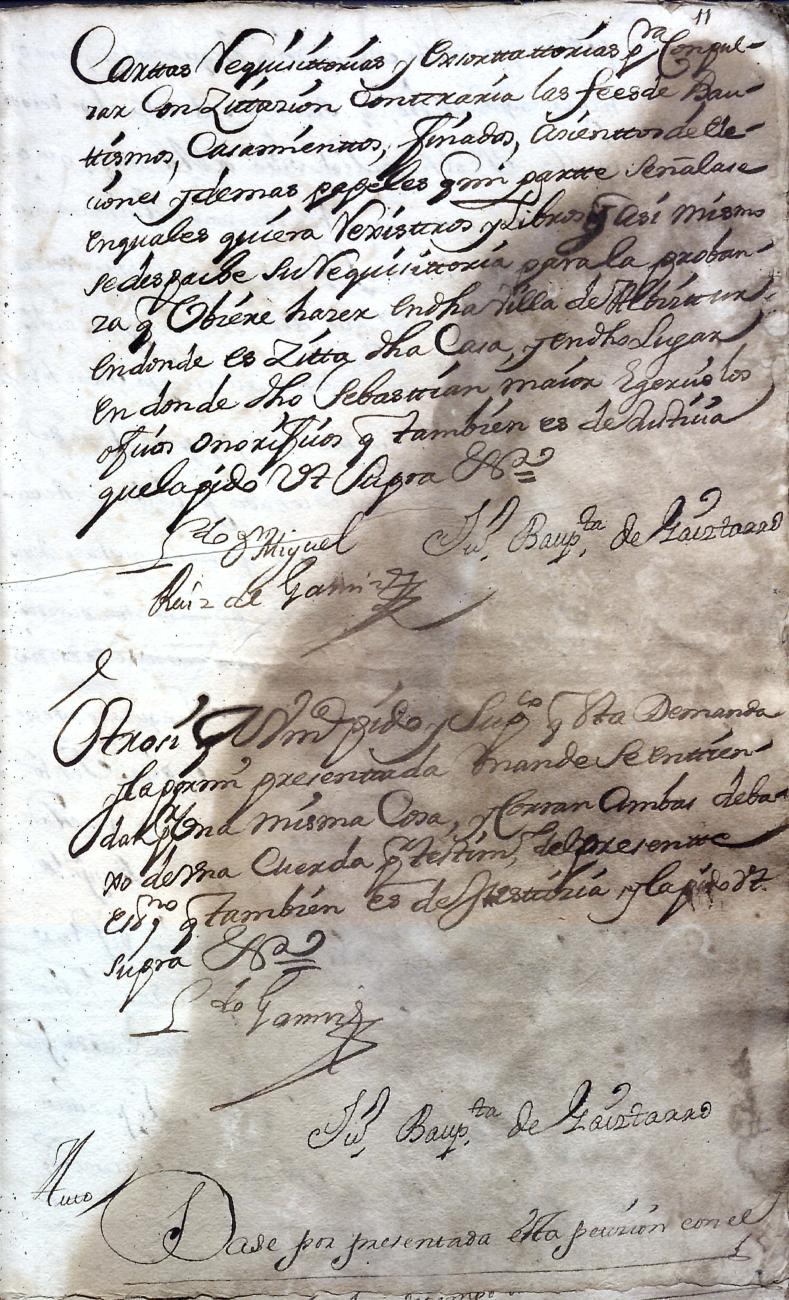 11
Carttas Requisittorias y Exsorttattorias pra Conpul-
zar Con Zittazion Conttraria las fees de Bau-
ttismos, Casamienttos, finados, Asienttos de Ele-
ciones y demas papeles q mi partte señalase
en quales quiera Rexisttros y Libros y asi mismo
se despache su Requisittoria para la proban-
za q Ubiere hazer en dha Villa de Albiztur,
en donde es Zitta dha Casa, y en dho Lugar
en donde dho Sebasttian maior Egerzio los
ofizios onorifizios q tambien es de Justizia
que la pido Ut Supra &ª
Ldo Dn Miguel Ju. Baupta. de Zaiztarro
Ruiz de Gamiz
Otrosi q a Vmd pido y Supco q Esta Demanda
y la por mi presenttada mande se enttien-
dan por Una misma Cosa, y Corran Ambas deba-
xo de una Cuerda por testim. del presentte
essno q tambien es de Justizia y la pido Ut
supra &ª
Ldo Gamiz
Ju. Baupta. de Zaiztarro
Auto
Dase por presentada esta peticion con el